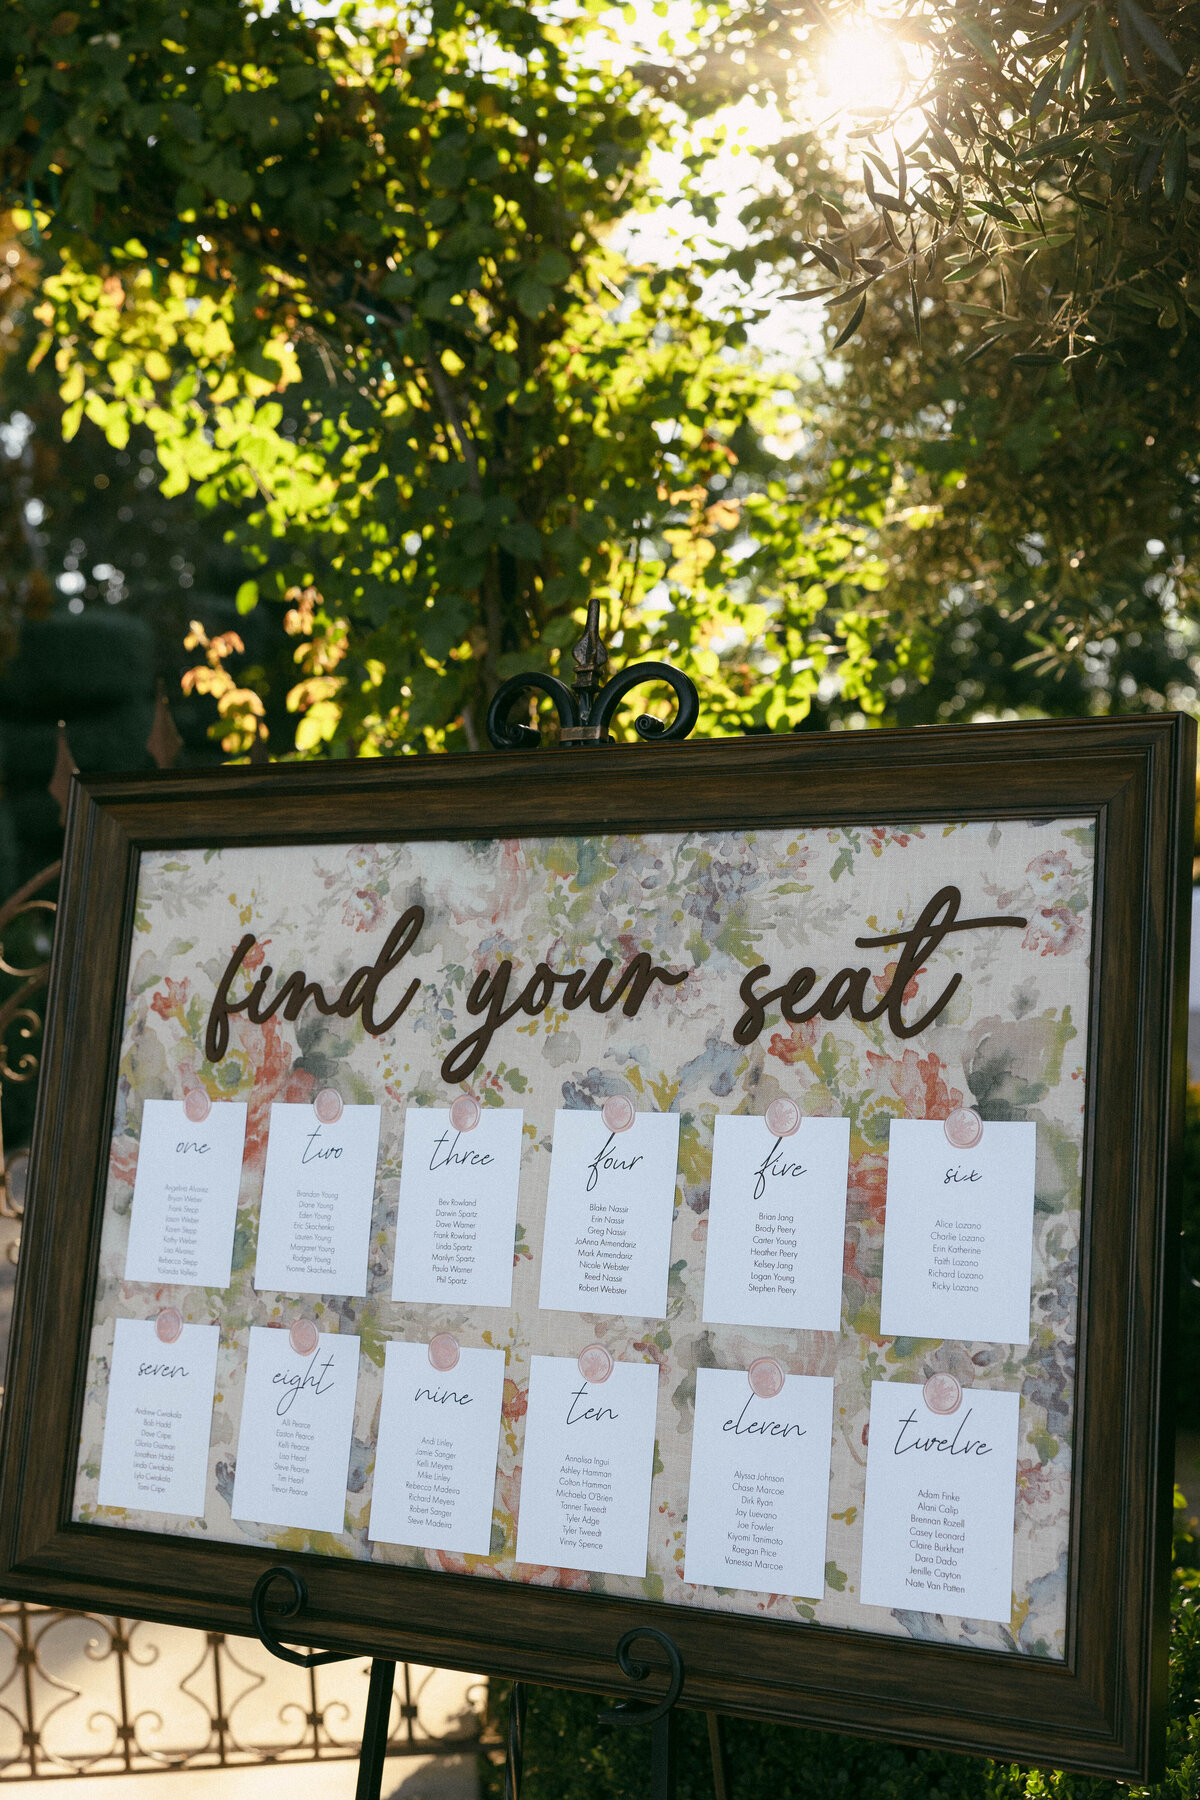 find your seat
one
Angelina Alvarez
Bryan Weber
Frank Stepp
Jason Weber
Karen Stepp
Kathy Weber
Lisa Alvarez
Rebecca Stepp
Yolanda Vallejo
two
Brandon Young
Diane Young
Eden Young
Eric Skochenko
Lauren Young
Margaret Young
Rodger Young
Yvonne Skochenko
three
Bev Rowland
Darwin Spartz
Dave Warner
Frank Rowland
Linda Spartz
Marilyn Spartz
Paula Warner
Phil Spartz
four
Blake Nassir
Erin Nassir
Greg Nassir
JoAnna Armendariz
Mark Armendariz
Nicole Webster
Reed Nassir
Robert Webster
five
Brian Jang
Brody Peery
Carter Young
Heather Peery
Kelsey Jang
Logan Young
Stephen Peery
six
Alice Lozano
Charlie Lozano
Erin Katherine
Faith Lozano
Richard Lozano
Ricky Lozano
seven
Andrew Cwiakala
Bob Hadd
Dave Cripe
Gloria Guzman
Jonathan Hadd
Linda Cwiakala
Lyla Cwiakala
Tami Cripe
eight
Alli Pearce
Easton Pearce
Kelli Pearce
Lisa Hearl
Steve Pearce
Tim Hearl
Trevor Pearce
nine
Andi Linley
Jamie Sanger
Kelli Meyers
Mike Linley
Rebecca Madeira
Richard Meyers
Robert Sanger
Steve Madeira
ten
Annalisa Ingui
Ashley Hamman
Colton Hamman
Michaela O'Brien
Tanner Tweedt
Tyler Adge
Tyler Tweedt
Vinny Spence
eleven
Alyssa Johnson
Chase Marcoe
Dirk Ryan
Jay Luevano
Joe Fowler
Kiyomi Tanimoto
Raegan Price
Vanessa Marcoe
twelve
Adam Finke
Alani Calip
Brennan Rozell
Casey Leonard
Claire Burkhart
Dara Dado
Jenille Cayton
Nate Van Patten